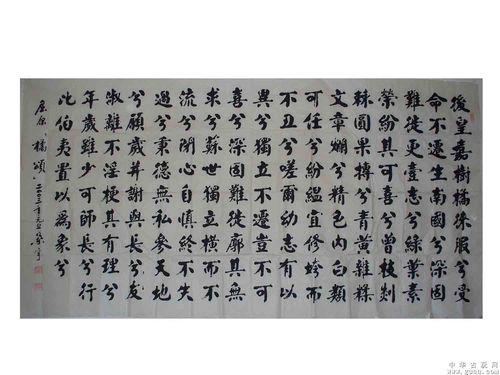 後皇嘉樹橘徠服兮受
命不遷生南國兮深固
難徙更壹志兮綠葉素
榮紛其可喜兮曾枝剡
棘圓果摶兮青黃雜糅
文章爛兮精色內白類
可任兮紛緼宜修姱而
不丑兮嗟爾幼志有以
異兮獨立不遷豈不可
喜兮深固難徙廓其無
求兮蘇世獨立橫而不
流兮閉心自慎終不失
過兮秉德無私參天地
兮願歲并謝與長兮友
淑離不淫梗其有理兮
年歲雖少可師長兮行
比伯夷置以為象兮
屈原橘頌二〇〇三年元旦
中华古玩网
www.gucn.com